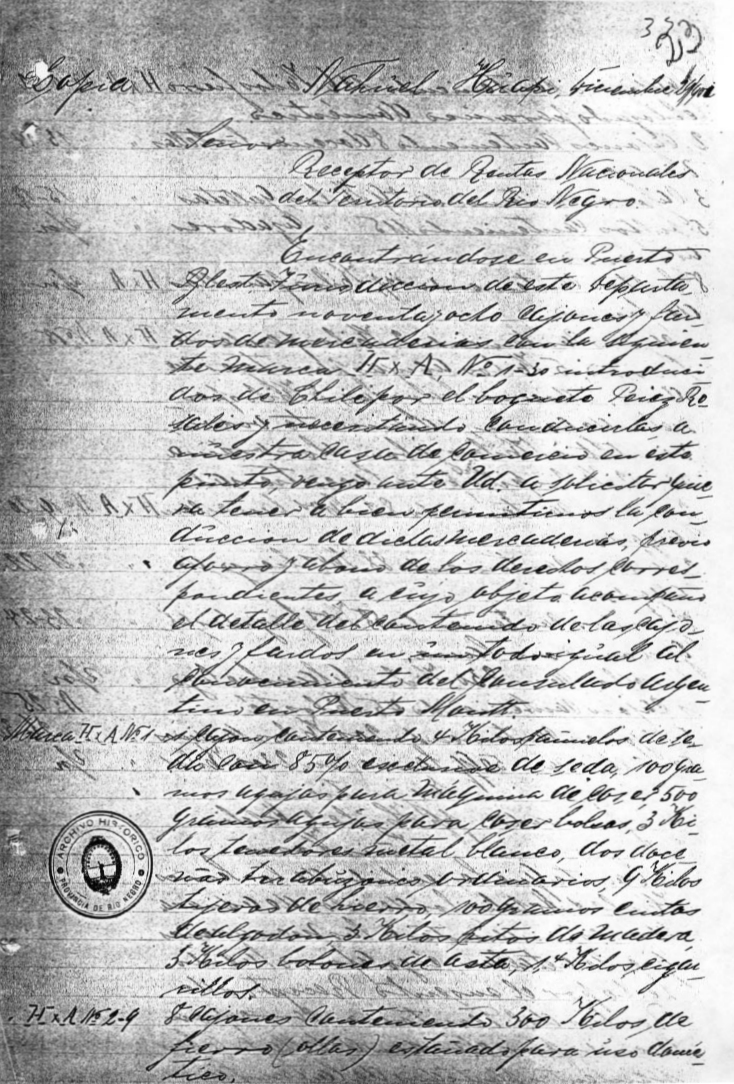 323
Copia Nahuel Huapi, Diciembre
Señor
Receptor de Rentas Nacionales
del Territorio del Rio Negro.
Encontrándose en Puerto
Blest Jurisdiccion de este Departa-
mento noventa y ocho cajones y far-
dos de mercaderias con la siguien-
te marca H x A, Nº 1-30 introduci-
dos de Chile por el boquete Perez Ro-
sales y necesitando conducirlas a
nuestra casa de comercio en este
punto, vengo ante Ud. a solicitar quie-
ra tener a bien permitirnos la con-
duccion de dichas mercaderias, previo
aforo y abono de los derechos corres-
pondientes, a cuyo objeto acompaño
el detalle del contenido de los cajo-
nes y fardos en un todo igual al
conocimiento del Consulado Argen-
tino en Puerto Montt.
Marca H x A Nº 1 - 1 cajon conteniendo 4 Kilos pañuelos de se-
da con 85% de seda, 100 gra-
mos agujas para maquina de coser, 500
gramos agujas para coser bolsas, 3 Ki-
los metal blanco, dos doce-
nas ordinarios, 9 Kilos
tijeras de hierro, 100 gramos cintas
de algodon, 3 Kilos pitos de madera
3 Kilos botones de asta, 14 Kilos cigar-
rillos.
H x A Nº 2-9 8 cajones conteniendo 300 Kilos de
fierro (ollas) estañado para uso domés-
tico.
ARCHIVO HISTORICO
PROVINCIA DE RIO NEGRO